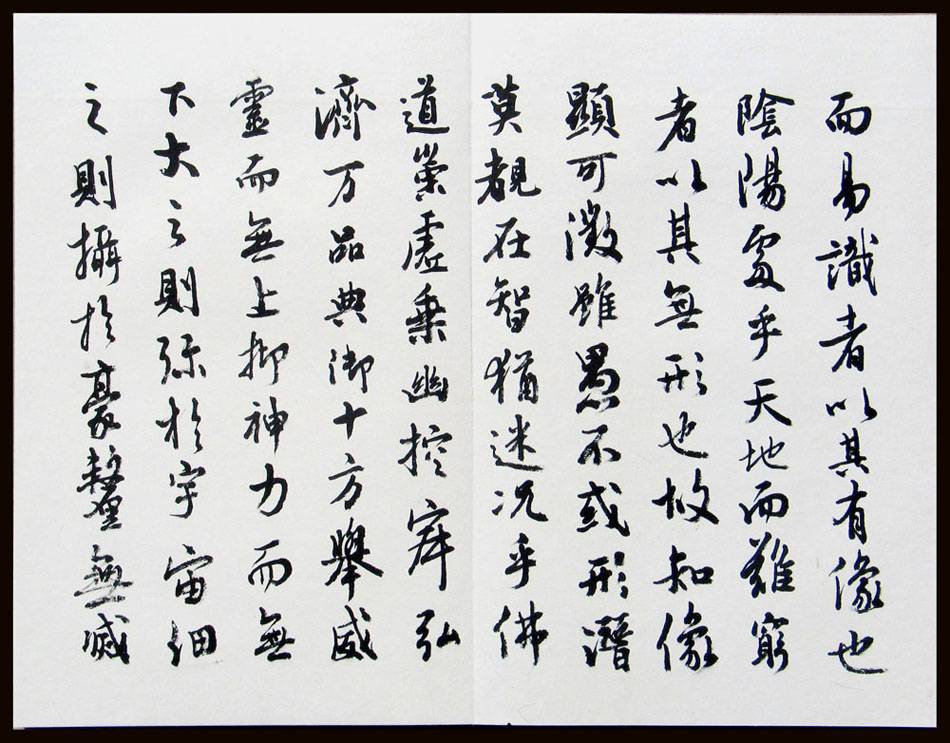 而易識者以其有像也
陰陽處乎天地而難窮
者以其無形也故知像
顯可徵雖愚不或形潛
莫覩在智猶迷况乎佛
道崇虛乗幽控寂弘
濟万品典御十方舉威
靈而無上抑神力而無
下大之則弥於宇宙細
之則攝於豪釐無滅